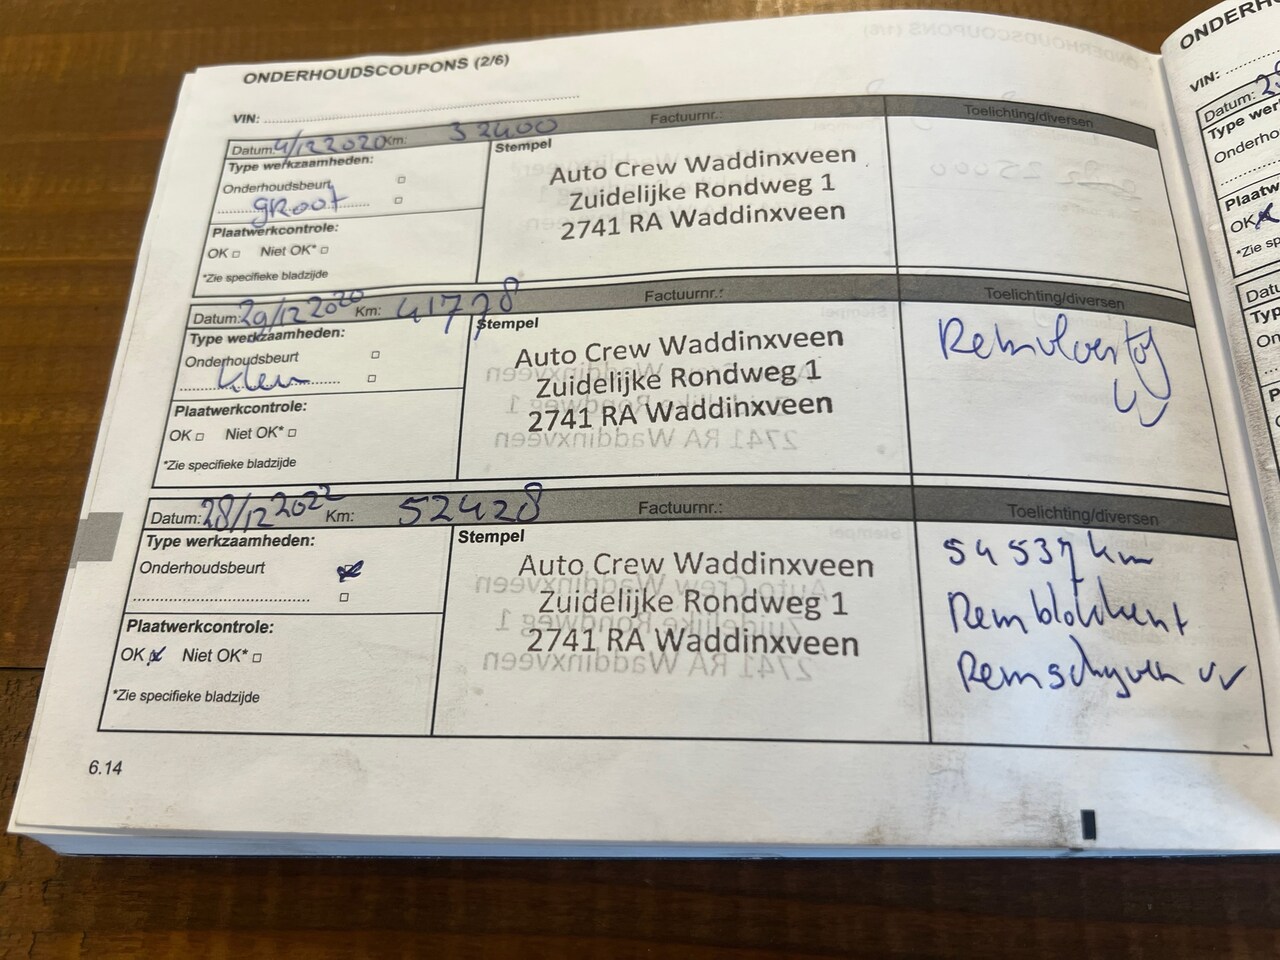 ONDERHOUDSCOUPONS (2/6)
VIN:
Datum: 4/12 2020 Km: 32400 Factuurnr.: Toelichting/diversen
Type werkzaamheden:
Onderhoudsbeurt
groot
Plaatwerkcontrole:
OK Niet OK*
*Zie specifieke bladzijde
Stempel
Auto Crew Waddinxveen
Zuidelijke Rondweg 1
2741 RA Waddinxveen
Datum: 29/12 2020 Km: 41778 Factuurnr.: Toelichting/diversen
Type werkzaamheden:
Onderhoudsbeurt
klein
Plaatwerkcontrole:
OK Niet OK*
*Zie specifieke bladzijde
Stempel
Auto Crew Waddinxveen
Zuidelijke Rondweg 1
2741 RA Waddinxveen
Remvloeistof
VV
Datum: 28/12 2022 Km: 52428 Factuurnr.: Toelichting/diversen
Type werkzaamheden:
Onderhoudsbeurt
Plaatwerkcontrole:
OK Niet OK*
*Zie specifieke bladzijde
Stempel
Auto Crew Waddinxveen
Zuidelijke Rondweg 1
2741 RA Waddinxveen
54537 km
Remblokken +
Remschijven VV
6.14
VIN:
Datum:
OK